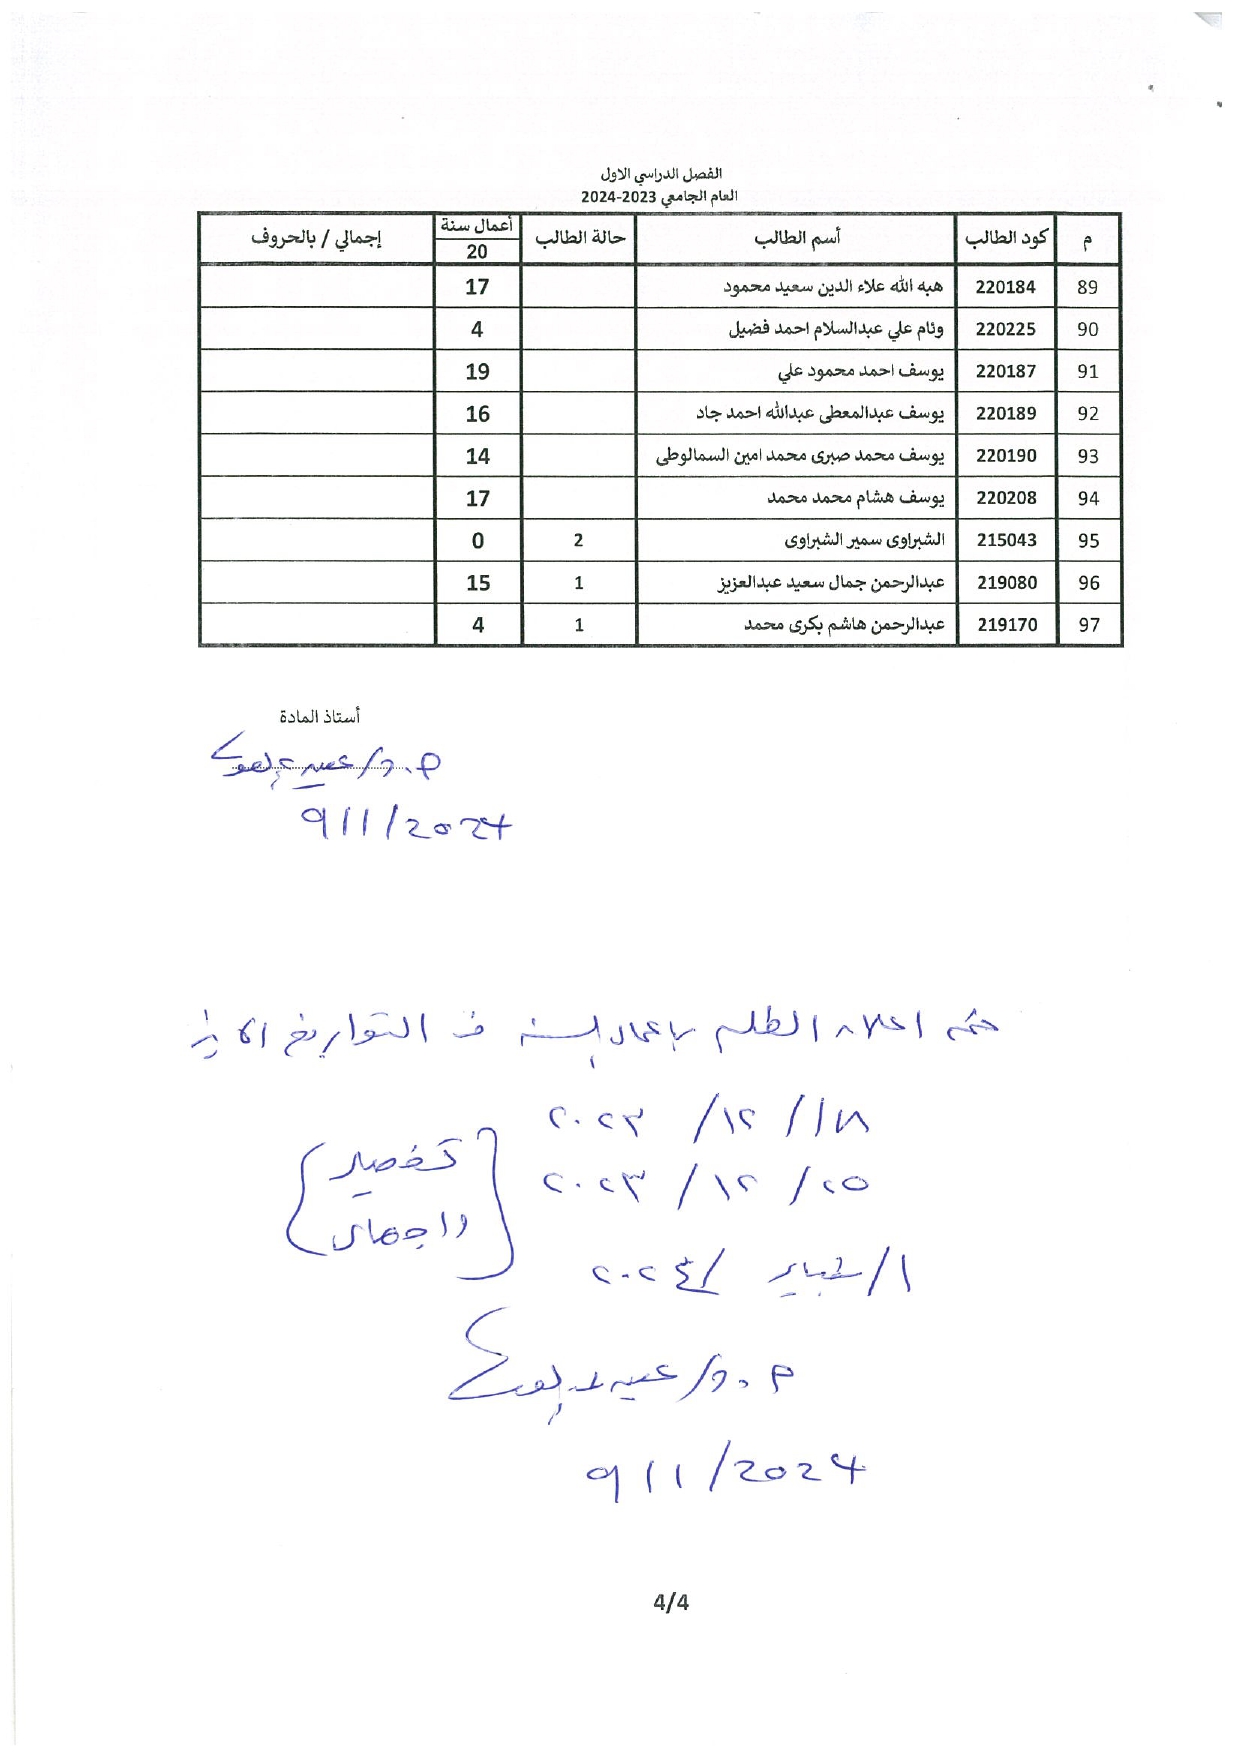 الفصل الدراسي الاول
العام الجامعي 2023-2024
م كود الطالب أسم الطالب حالة الطالب أعمال سنة 20 إجمالي / بالحروف
89 220184 هبه الله علاء الدين سعيد محمود 17
90 220225 وئام علي عبدالسلام احمد فضيل 4
91 220187 يوسف احمد محمود علي 19
92 220189 يوسف عبدالمعطى عبدالله احمد جاد 16
93 220190 يوسف محمد صبرى محمد امين السمالوطى 14
94 220208 يوسف هشام محمد محمد 17
95 215043 الشبراوى سمير الشبراوى 2 0
96 219080 عبدالرحمن جمال سعيد عبدالعزيز 1 15
97 219170 عبدالرحمن هاشم بكرى محمد 1 4
أستاذ المادة
م.د/
9/1/2024
اعلان الطلبه باعمال السنه فى التواريخ
١٨/ ١٢/ ٢٠٢٣
٢٥/ ١٢/ ٢٠٢٣
واجمالى
١/ يناير /٢٠٢٤
م.د/
9/1/2024
4/4